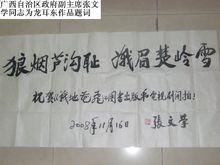 广西自治区政府副主席张文
学同志为龙耳东作品题词
狼烟芦沟耻 峨眉楚岭雪
祝贺《战地范范》图书出版和电视剧开拍!
2008年11月16日
张文学